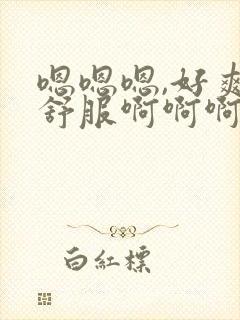 嗯嗯嗯,好爽
舒服啊啊啊
白紅標